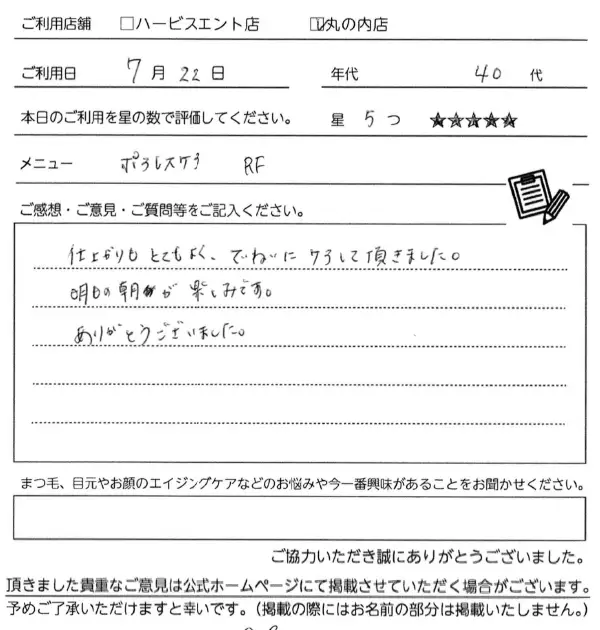 ご利用店舗 □ハービスエント店 ☑丸の内店
ご利用日 7月22日 年代 40代
本日のご利用を星の数で評価してください。 星 5つ ★★★★★
メニュー ポラレスケラ RF
ご感想・ご意見・ご質問等をご記入ください。
仕上がりもとてもよく、ていねいにケアして頂きました。
明日の朝が楽しみです。
ありがとうございました。
まつ毛、目元やお顔のエイジングケアなどのお悩みや今一番興味があることをお聞かせください。
ご協力いただき誠にありがとうございました。
頂きました貴重なご意見は公式ホームページにて掲載させていただく場合がございます。
予めご了承いただけますと幸いです。（掲載の際にはお名前の部分は掲載いたしません。）